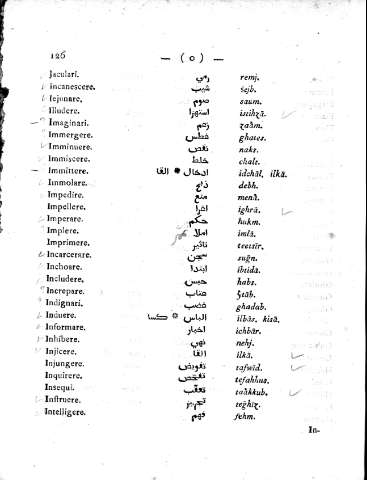 126 — ( o ) —
Jaculari. رمي remj.
Incanescere. شيب šejb.
Jejunare, صوم saum.
Illudere. استهزا istihzā.
Imaginari. زعم zaâm.
Immergere. غطس ghates.
Imminuere. نقص naks.
Immiscere. خلط chalt.
Immittere. ادخال * القا idchāl, ilkā.
Immolare. ذبح debh.
Impedire. منع menâ.
Impellere. اغرا ighrā.
Imperare. حكم hukm.
Implere. املا imlā.
Imprimere. تاثير teetsīr.
Incarcerare. سجن suǧn.
Inchoare. ابتدا ibtidā.
Includere, حبس habs.
Increpare. عتاب âtāb.
Indignari. غضب ghadab.
Induere. الباس * كسا ilbās, kisā.
Informare. اخبار ichbār.
Inhibere. نهي nehj.
Injicere. القا ilkā.
Injungere. تفويض tafwīd.
Inquirere. تفحص tefahhus.
Insequi. تعقب taâkkub.
Instruere. تجهيز teǧhīz.
Intelligere. فهم fehm.
In-